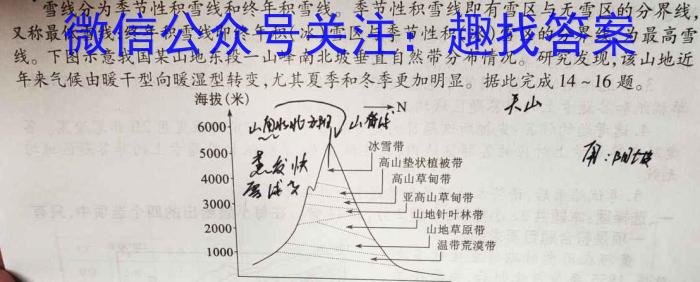 雪线分为季节性积雪线和终年积雪线。季节性积雪线即有雪区与无雪区的分界线,
又称最低雪线;终年积雪线即终年积(冰)雪区与季节性积
的分界线,为最高雪
微信公众号关注:趣找答案
线。下图示意我国某山地东段一山峰南北坡垂直自然带分布情况。研究发现,该山地近
年来气候由暖干型向暖湿型转变,尤其夏季和冬季更加明显。据此完成14~16题。
海拔(米)
N
天山
6000
5000
4000
3000
2000
1000
冰雪带
高山垫状植被带
高山草甸带
亚高山草甸带
山地针叶林带
山地草原带
温带荒漠带
蒸发快